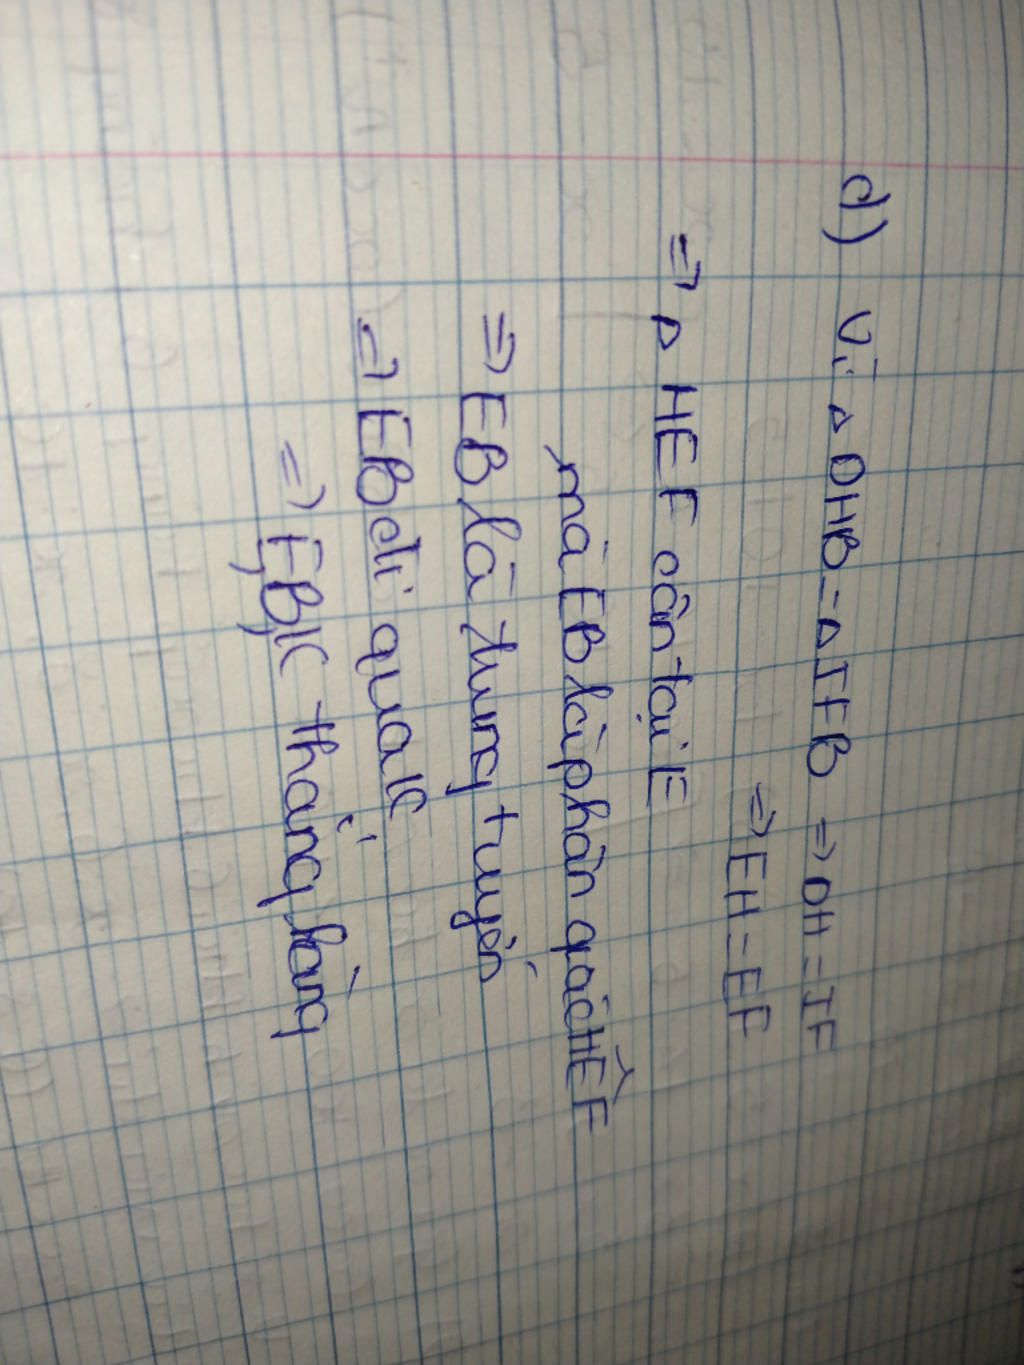 d) Vì △DHB = △IFB => DH = IF
=> EH = EF
=> △ HEF cân tại E
mà EB là phân giác HÊF
=> EB là trung tuyến
=> EB đi qua K
=> E,B,K thẳng hàng